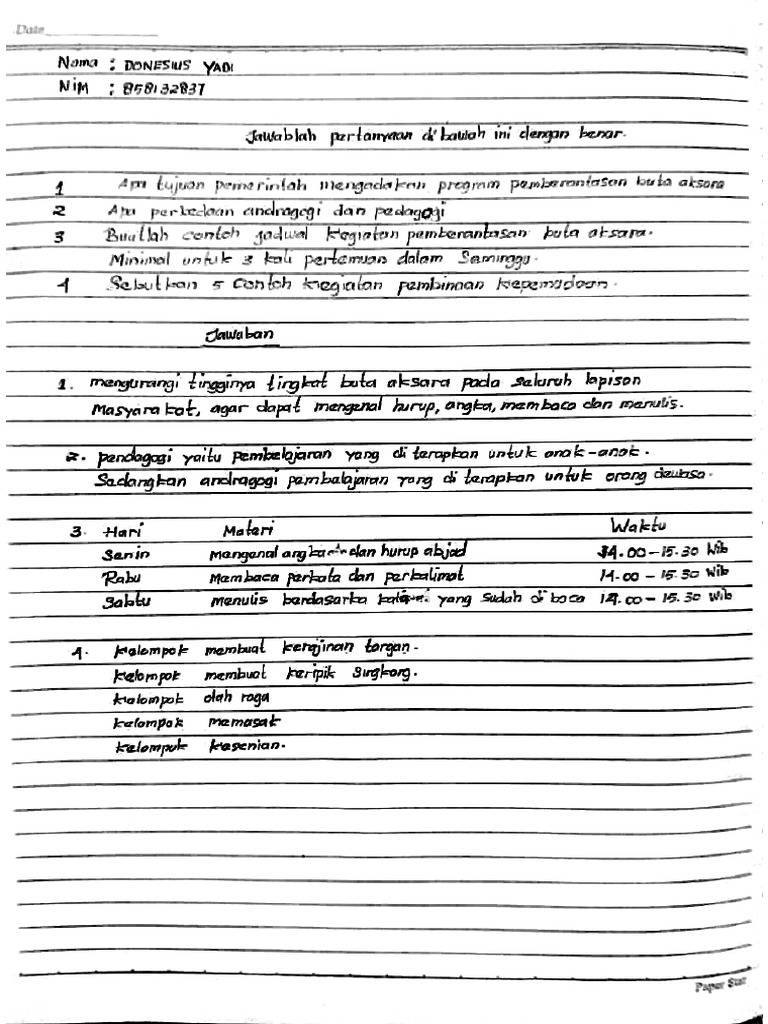 Date
Nama : DONESIUS YADI
NIM : 858132837
Jawablah pertanyaan di bawah ini dengan benar.
1 Apa tujuan pemerintah mengadakan program pemberantasan buta aksara
2 Apa perbedaan andragogi dan pedagogi
3 Buatlah contoh jadwal kegiatan pemberantasan buta aksara.
Minimal untuk 3 kali pertemuan dalam Seminggu.
4 Sebutkan 5 Contoh kegiatan pembinaan kepemudaan.
Jawaban
1. mengurangi tingginya tingkat buta aksara pada seluruh lapisan
Masyarakat, agar dapat mengenal hurup, angka, membaca dan menulis.
2. pendagogi yaitu pembelajaran yang di terapkan untuk anak-anak.
Sedangkan andragogi pembelajaran yang di terapkan untuk orang dewasa.
3. Hari Materi Waktu
Senin mengenal angka dan hurup abjad 14.00-15.30 Wib
Rabu Membaca perkata dan perkalimat 14.00-15.30 Wib
Sabtu menulis berdasarka yang sudah di baca 14.00-15.30 Wib
4. kelompok membuat kerajinan tangan.
kelompok membuat keripik singkong.
kelompok olah raga
kelompok memasak
kelompok kesenian.
Paper Star